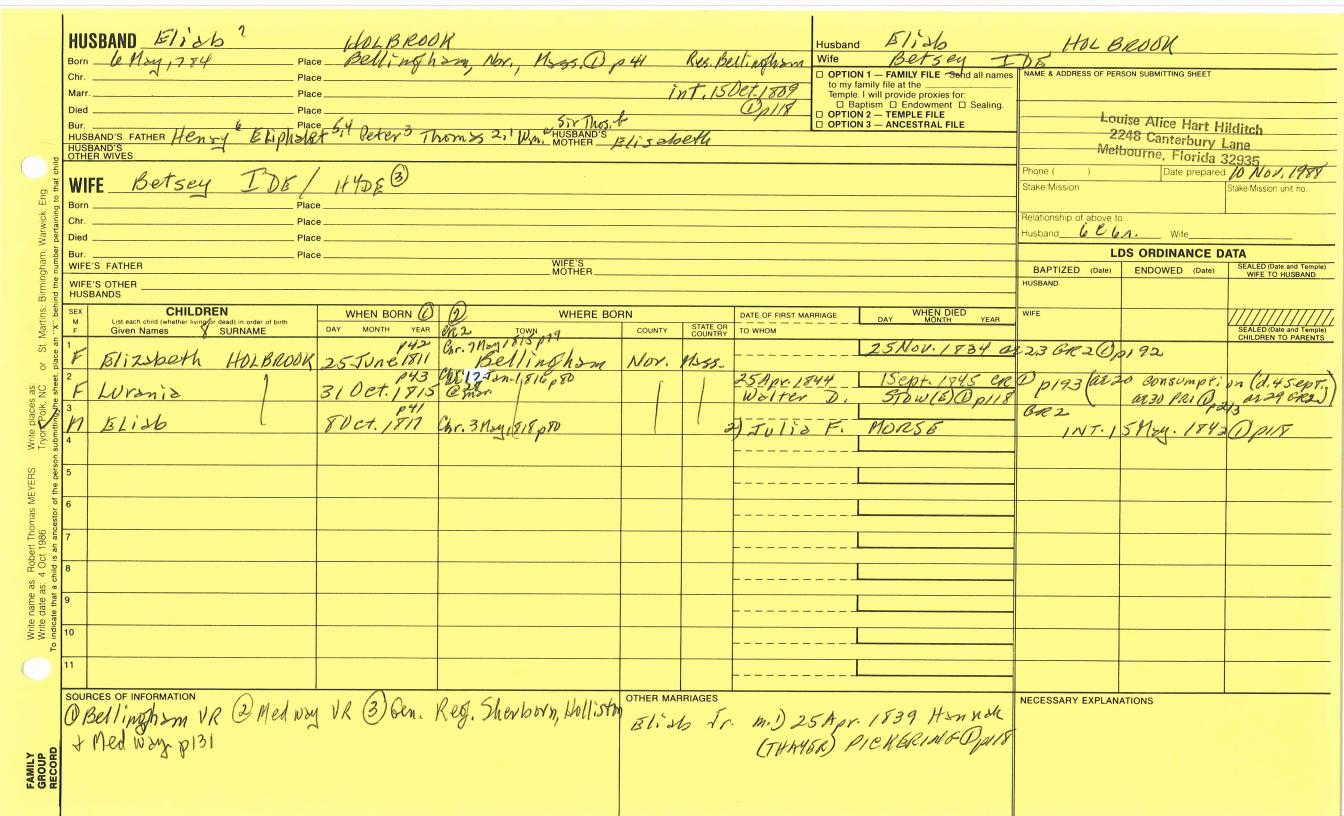 HUSBAND Eliab 7 HOLBROOK
Born 6 May, 1784 Place Bellingham, Nor., Mass. ① p 41 Res. Bellingham
Chr. Place
Marr. Place int. 15 Oct. 1809
Died Place ① p118
Bur. Place Sir Thos. b
HUSBAND'S FATHER Henry 6 Eliphalet 5,4 Peter 3 Thomas 2,1 Wm. HUSBAND'S MOTHER Elisabeth
HUSBAND'S OTHER WIVES
WIFE Betsey IDE / HYDE ③
Born Place
Chr. Place
Died Place
Bur. Place
WIFE'S FATHER WIFE'S MOTHER
WIFE'S OTHER HUSBANDS
Husband Eliab HOLBROOK
Wife Betsey IDE
OPTION 1 — FAMILY FILE Send all names
to my family file at the
Temple. I will provide proxies for:
Baptism Endowment Sealing.
OPTION 2 — TEMPLE FILE
OPTION 3 — ANCESTRAL FILE
NAME & ADDRESS OF PERSON SUBMITTING SHEET
Louise Alice Hart Hilditch
2248 Canterbury Lane
Melbourne, Florida 32935
Phone ( ) Date prepared 10 Nov. 1988
Stake/Mission Stake/Mission unit no.
Relationship of above to:
Husband 6C6r. Wife
LDS ORDINANCE DATA
BAPTIZED (Date) ENDOWED (Date) SEALED (Date and Temple) WIFE TO HUSBAND
HUSBAND
WIFE
SEALED (Date and Temple) CHILDREN TO PARENTS
SEX M F CHILDREN WHEN BORN ① ② WHERE BORN DATE OF FIRST MARRIAGE WHEN DIED
List each child (whether living or dead) in order of birth
Given Names 8 SURNAME DAY MONTH YEAR TOWN COUNTY STATE OR COUNTRY TO WHOM DAY MONTH YEAR
p42 Chr. 7 May, 1815 p79
1 F Elizabeth HOLBROOK 25 June 1811 Bellingham Nor. Mass. 25 Nov. 1834 ae 23 GR2 ① p192
p43 Jan. 1, 1816 p80
2 F Lurania 31 Oct. 1815 25 Apr. 1844 1 Sept. 1845 CR ① p193 (ae 20 consumption (d. 4 Sept.
Walter D. STOW(E) ① p118 ae 30 PR1 ① p213 ae 29 GR2)
p41 GR2
3 M Eliab 8 Oct. 1817 Chr. 3 May, 1818 p80 2) Julia F. MORSE INT. 15 May. 1842 ① p118
4
5
6
7
8
9
10
11
SOURCES OF INFORMATION
① Bellingham VR ② Medway VR ③ Gen. Reg. Sherborn, Holliston
+ Medway p131
OTHER MARRIAGES
Eliab Jr. m.1) 25 Apr. 1839 Hannah
(THAYER) PICKERING ① p118
NECESSARY EXPLANATIONS
Write name as: Robert Thomas MEYERS Write places as: Tryon, Polk, NC or St. Martins, Birmingham, Warwick, Eng
Write date as: 4 Oct 1986
To indicate that a child is an ancestor of the person submitting the sheet, place an "X" behind the number pertaining to that child
FAMILY
GROUP
RECORD